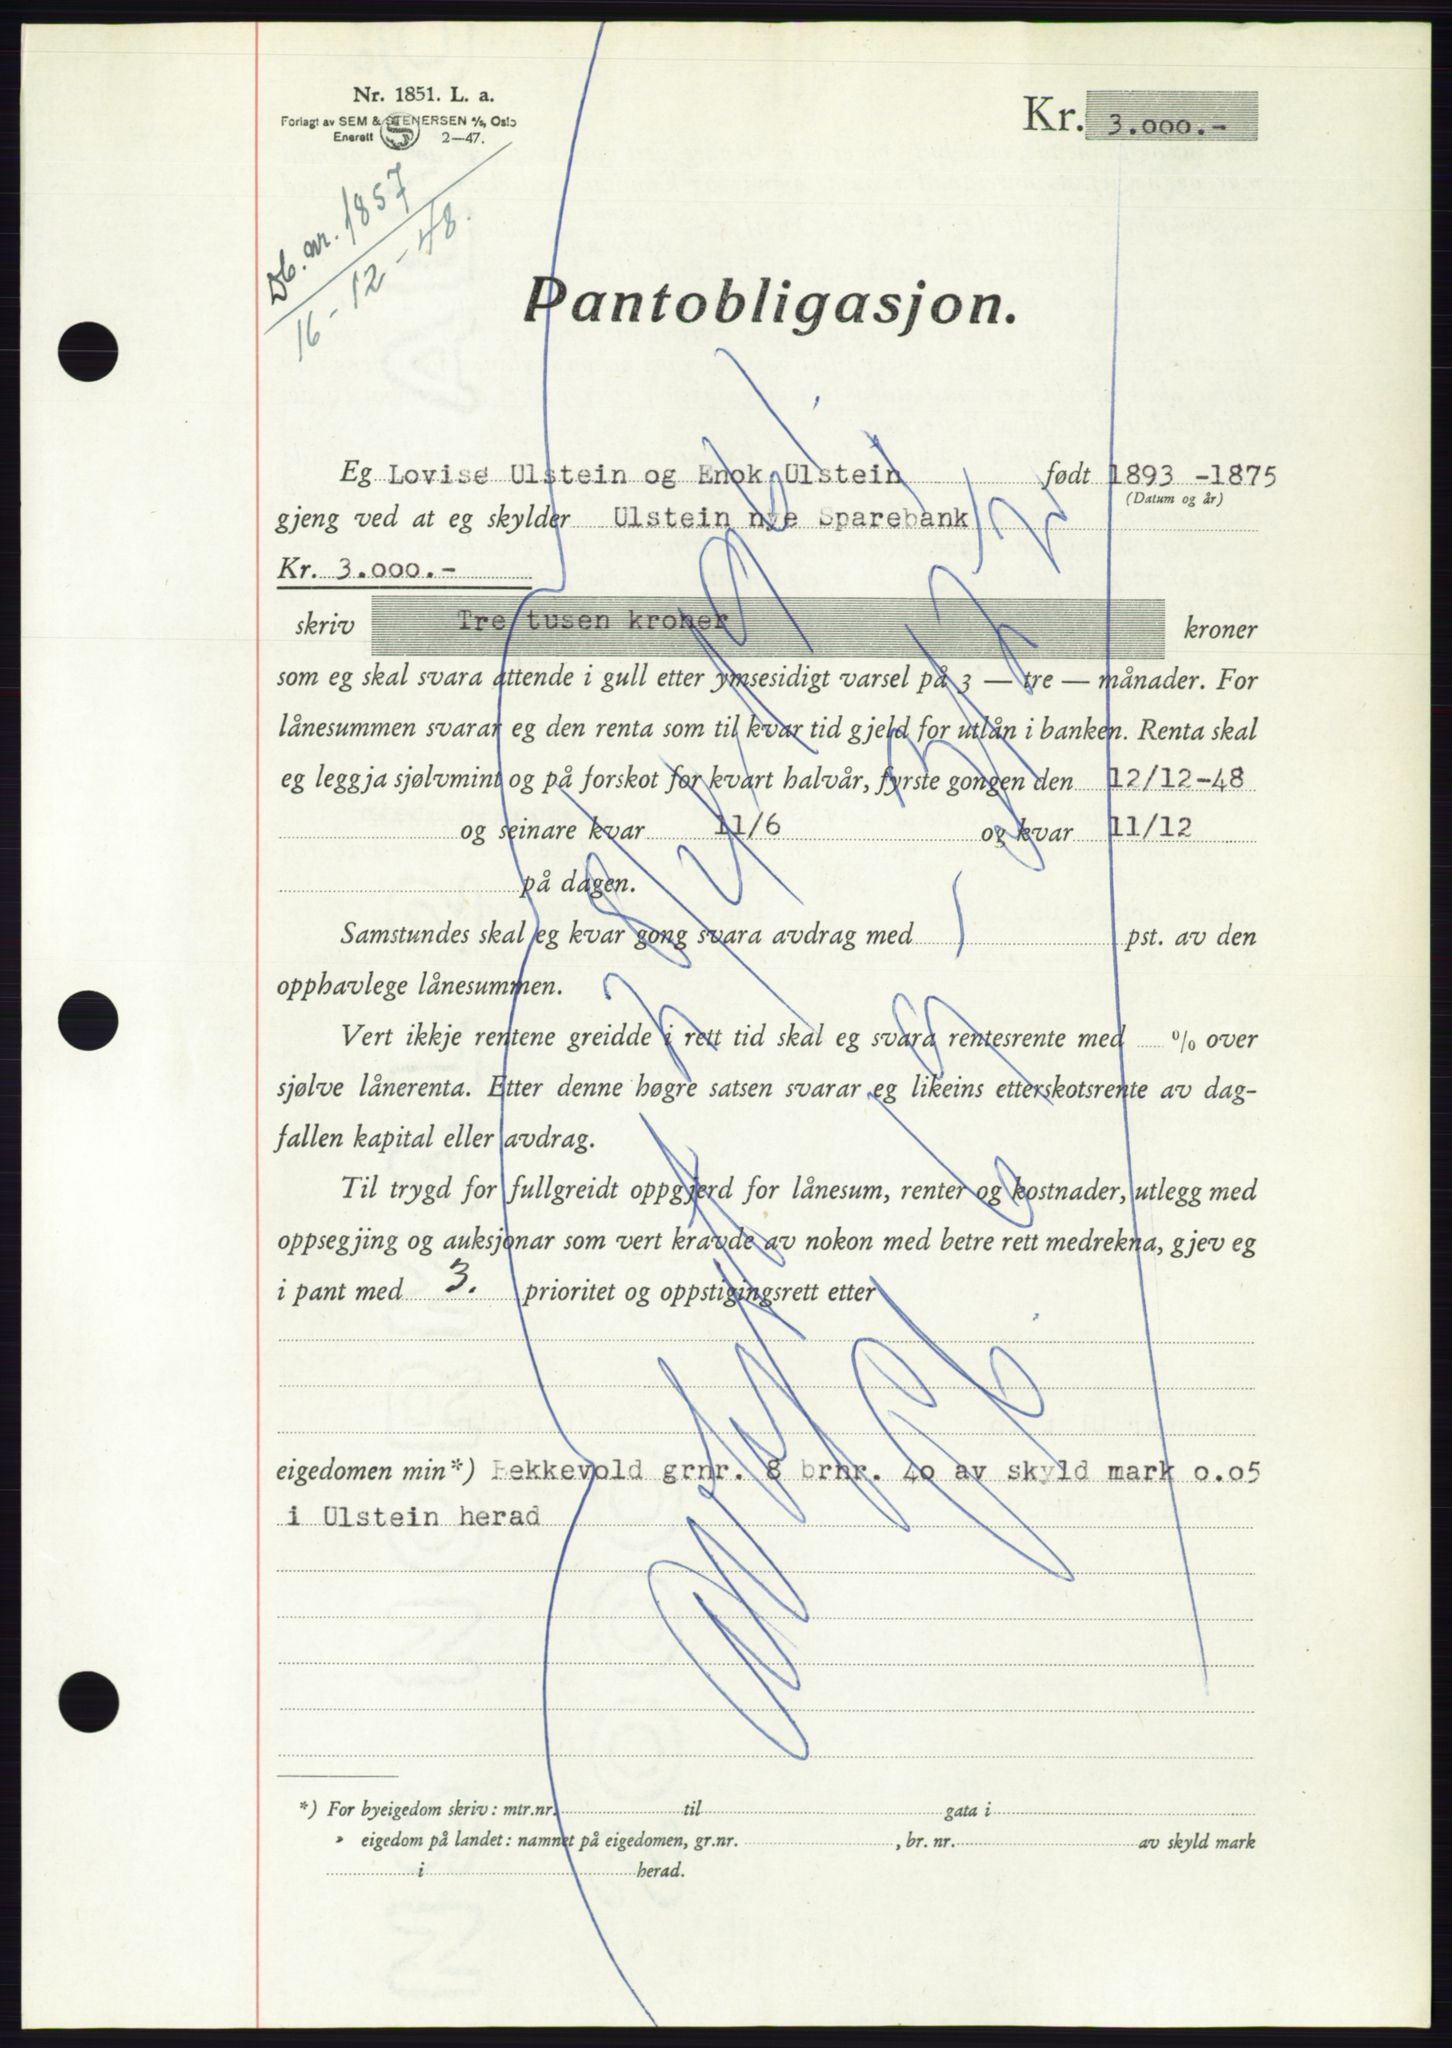 Nr. 1851. L. a.
Forlagt av SEM & STENERSEN A/S, Oslo
Enerett 2—47.
Kr. 3.000.-
Db. nr. 1857
16-12-48.
Pantobligasjon.
Eg Lovise Ulstein og Enok Ulstein født 1893 -1875
(Datum og år)
gjeng ved at eg skylder Ulstein nye Sparebank
Kr. 3.000.-
skriv Tre tusen kroner kroner
som eg skal svara attende i gull etter ymsesidigt varsel på 3 — tre — månader. For
lånesummen svarar eg den renta som til kvar tid gjeld for utlån i banken. Renta skal
eg leggja sjølvmint og på forskot for kvart halvår, fyrste gongen den 12/12-48
og seinare kvar 11/6 og kvar 11/12
på dagen.
Samstundes skal eg kvar gong svara avdrag med pst. av den
opphavlege lånesummen.
Vert ikkje rentene greidde i rett tid skal eg svara rentesrente med % over
sjølve lånerenta. Etter denne høgre satsen svarar eg likeins etterskotsrente av dag-
fallen kapital eller avdrag.
Til trygd for fullgreidt oppgjerd for lånesum, renter og kostnader, utlegg med
oppsegjing og auksjonar som vert kravde av nokon med betre rett medrekna, gjev eg
i pant med 3. prioritet og oppstigingsrett etter
eigedomen min*) Bekkevold grnr. 8 brnr. 40 av skyld mark 0.05
i Ulstein herad
*) For byeigedom skriv: mtr.nr. til gata i
» eigedom på landet: namnet på eigedomen, gr.nr. , br. nr. av skyld mark
i herad.